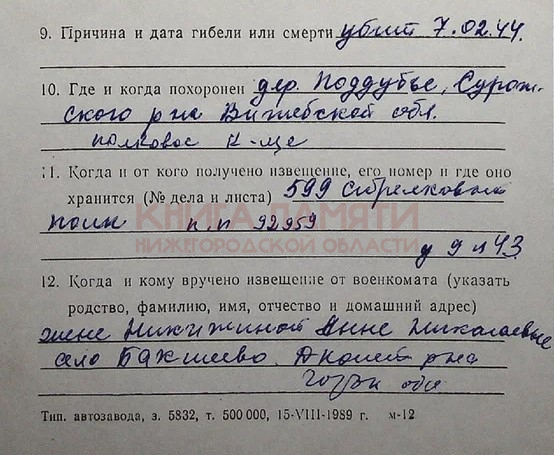 9. Причина и дата гибели или смерти убит 7.02.44.
10. Где и когда похоронен дер. Поддубье, Сураж-
ского р-на Витебской обл.
полковое к-ще
11. Когда и от кого получено извещение, его номер и где оно
хранится (№ дела и листа) 599 стрелковый
полк п.п 92959
КНИГА ПАМЯТИ
НИЖЕГОРОДСКОЙ ОБЛАСТИ
д 9 л 43
12. Когда и кому вручено извещение от военкомата (указать
родство, фамилию, имя, отчество и домашний адрес)
жене Анне Николаевне
село Бакшеево р-на
Горьк обл
Тип. автозавода, з. 5832, т. 500 000, 15-VIII-1989 г. м-12